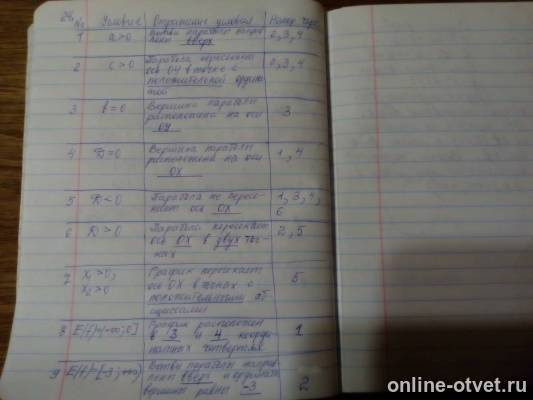 № Условие Отражение условия Номер черт.
1 a>0 Ветви параболы направ
лены вверх 2,3,4
2 c>0 Парабола пересекает
ось OY в точке с
положительной ордина
той 2,3,4
3 b=0 Вершина параболы
расположена на оси
OY 3
4 D=0 Вершина параболы
расположена на оси
OX 1,4
5 D<0 Парабола не пересе-
кает ось OX 1,3,4,
6
6 D>0 Парабола пересекает
ось OX в двух точ-
ках 2,5
7 x₁>0; График пересекает
x₂>0 ось OX в точках с
положительными аб
сциссами 5
8 E(f)=(-∞;0] График расположен
в 3 и 4 коорди
натных четвертях 1
9 E(f)=[-3;+∞) Ветви параболы направ
лены вверх и ордината
вершины равна -3 2
online-otvet.ru